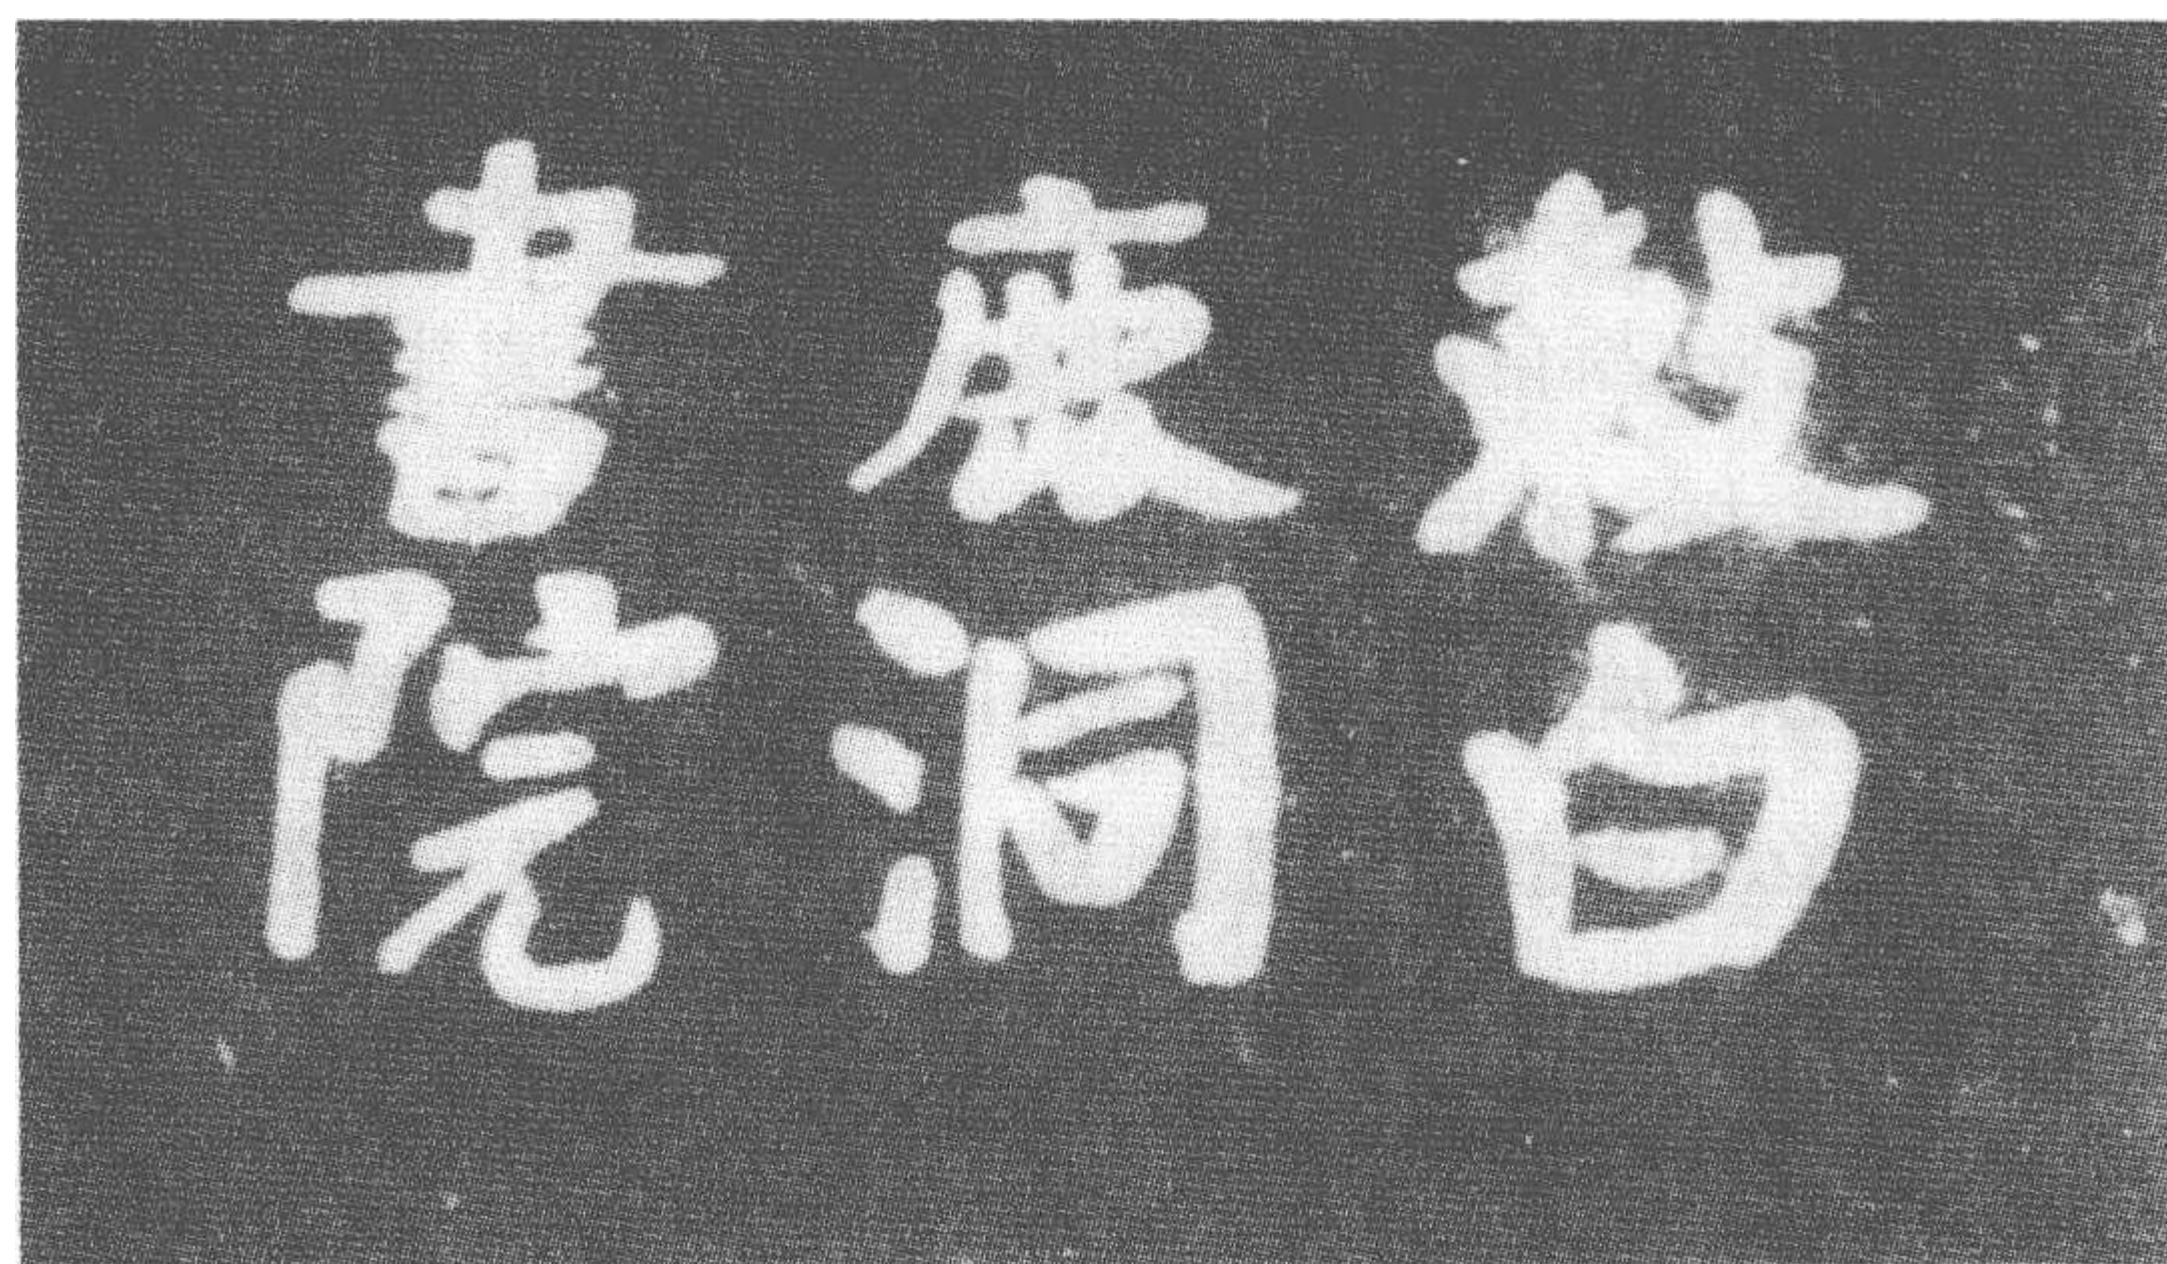 白
鹿洞
書院